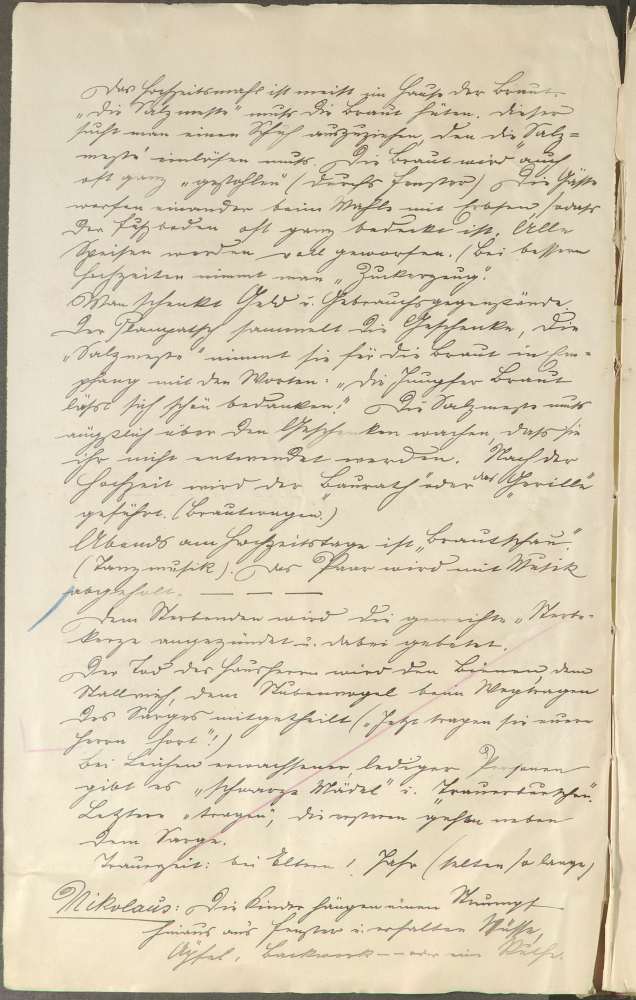 Das Hochzeitsmahl ist meist im Hause der Braut.
"Die Salzmeste" muß die Braut hüten. Dieser
sucht man einen Schuh auszuziehen, den die "Salz=
meste" einlösen muß. Die Braut wird auch
oft ganz "gestohlen" (durchs Fenster). Die Gäste
werfen einander beim Mahle mit Erbsen, sodaß
der Fußboden oft ganz bedeckt ist. Alle
Speisen werden voll geworfen. (Bei bessern
Hochzeiten nimmt man "Zuckerzeug".
Man schenkt Geld u. Gebrauchsgegenstände.
Der Plampatsch sammelt die Geschenke, die
"Salzmeste" nimmt sie für die Braut in Em=
pfang mit den Worten: "Die Jungfer Braut
läßt sich schön bedanken!" Die Salzmeste muß
ängstlich über den Geschenken wachen, daß sie
ihr nicht entwendet werden. Nach der
Hochzeit wird der "Baurath" oder das "Gerille"
geführt. (Brautwagen.)
Abends am Hochzeitstage ist "Brautschau".
(Tanzmusik). Das Paar wird mit Musik
abgeholt. — — —
Dem Sterbenden wird die geweihte "Sterbe-
kerze angezündet u. dabei gebetet.
Der Tod des Hausherrn wird den Bienen, dem
Stallvieh, dem Stubenvogel beim Wegtragen
des Sarges mitgetheilt ("Jetzt tragen sie euern
Herrn fort"!)
Bei Leichen erwachsener, lediger Personen
gibt es "schwarze Mädel" u. "Trauerburschen".
Letztere "tragen", die ersteren gehen neben
dem Sarge.
Trauerzeit: bei Eltern 1 Jahr (selten so lange)
Nikolaus: Die Kinder hängen einen Strumpf
hinaus ans Fenster u. erhalten Nüsse,
Äpfel, Backwerk — oder eine Ruthe.